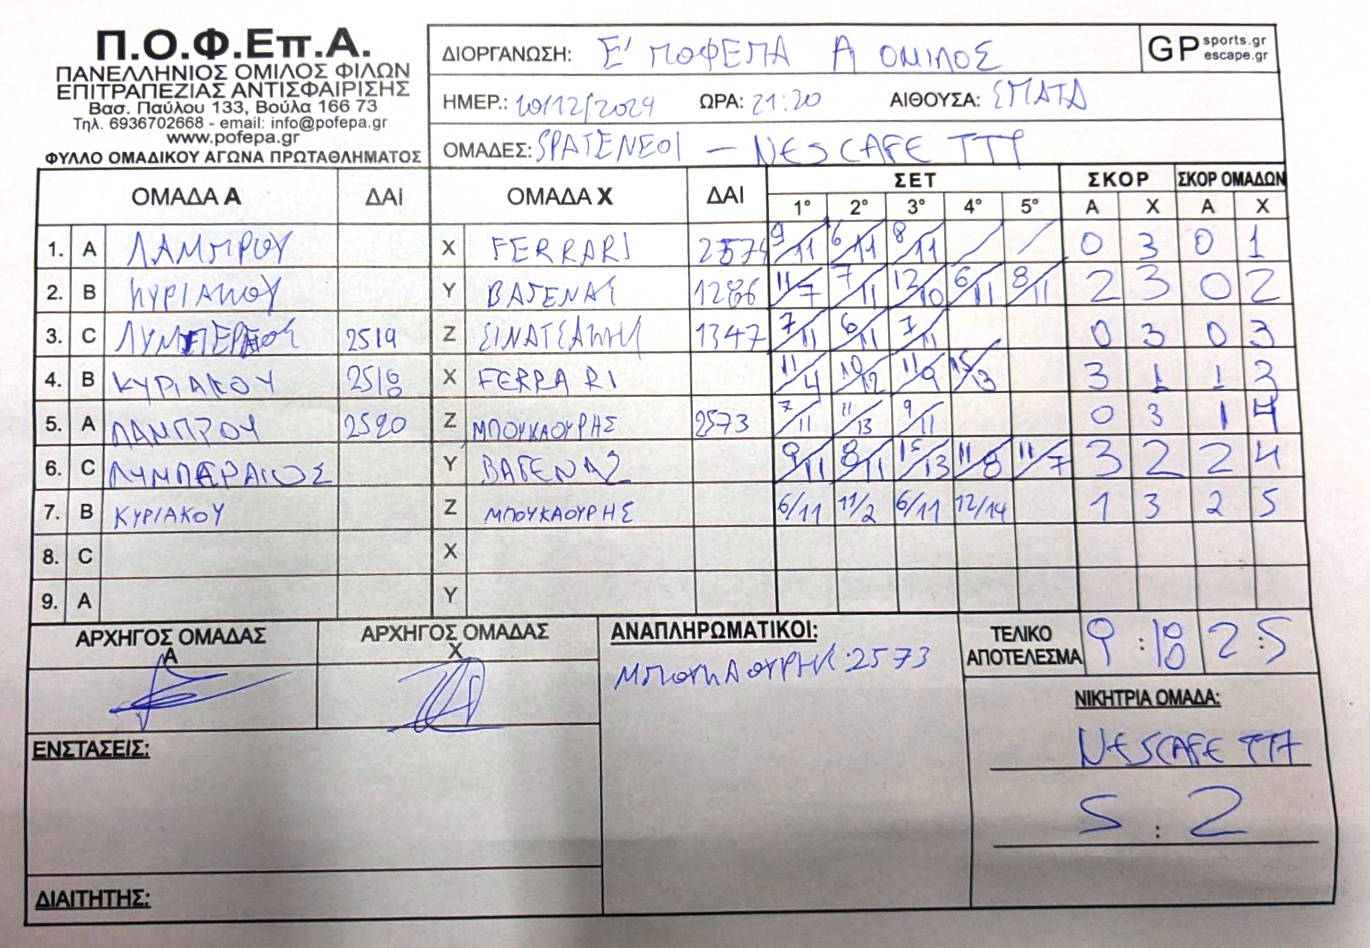 Π.Ο.Φ.Επ.Α.
ΠΑΝΕΛΛΗΝΙΟΣ ΟΜΙΛΟΣ ΦΙΛΩΝ
ΕΠΙΤΡΑΠΕΖΙΑΣ ΑΝΤΙΣΦΑΙΡΙΣΗΣ
Βασ. Παύλου 133, Βούλα 166 73
Τηλ. 6936702668 - email: info@pofepa.gr
www.pofepa.gr
ΦΥΛΛΟ ΟΜΑΔΙΚΟΥ ΑΓΩΝΑ ΠΡΩΤΑΘΛΗΜΑΤΟΣ
ΔΙΟΡΓΑΝΩΣΗ: Ε' ΠΟΦΕΠΑ Α ΟΜΙΛΟΣ
GP sports.gr escape.gr
ΗΜΕΡ.: 10/12/2024 ΩΡΑ: 21:20 ΑΙΘΟΥΣΑ: ΣΜΑΤΑ
ΟΜΑΔΕΣ: SPATENEOI - NESCAFE TTT
ΟΜΑΔΑ Α ΔΑΙ ΟΜΑΔΑ Χ ΔΑΙ ΣΕΤ ΣΚΟΡ ΣΚΟΡ ΟΜΑΔΩΝ
1° 2° 3° 4° 5° Α Χ Α Χ
1. A ΛΑΜΠΡΟΥ X FERRARI 2574 9/11 6/11 8/11 / / 0 3 0 1
2. B ΚΥΡΙΑΚΟΥ Y ΒΑΓΕΝΑΣ 1286 11/7 7/11 12/10 6/11 8/11 2 3 0 2
3. C ΛΥΜΠΕΡΑΙΟΣ 2519 Z ΣΙΝΑΤΣΑΚΗΣ 1347 7/11 6/11 7/11 0 3 0 3
4. B ΚΥΡΙΑΚΟΥ 2518 X FERRARI 11/4 10/12 11/9 15/13 3 1 1 3
5. A ΛΑΜΠΡΟΥ 2520 Z ΜΠΟΥΚΑΟΥΡΗΣ 2573 7/11 11/13 9/11 0 3 1 4
6. C ΛΥΜΠΕΡΑΙΟΣ Y ΒΑΓΕΝΑΣ 9/11 8/11 15/13 11/8 11/7 3 2 2 4
7. B ΚΥΡΙΑΚΟΥ Z ΜΠΟΥΚΑΟΥΡΗΣ 6/11 11/2 6/11 12/14 1 3 2 5
8. C X
9. A Y
ΑΡΧΗΓΟΣ ΟΜΑΔΑΣ Α
ΑΡΧΗΓΟΣ ΟΜΑΔΑΣ Χ
ΑΝΑΠΛΗΡΩΜΑΤΙΚΟΙ:
ΜΠΟΥΚΑΟΥΡΗΣ: 2573
ΤΕΛΙΚΟ ΑΠΟΤΕΛΕΣΜΑ 9 : 18 2 : 5
ΝΙΚΗΤΡΙΑ ΟΜΑΔΑ:
NESCAFE TTT
5 : 2
ΕΝΣΤΑΣΕΙΣ:
ΔΙΑΙΤΗΤΗΣ: